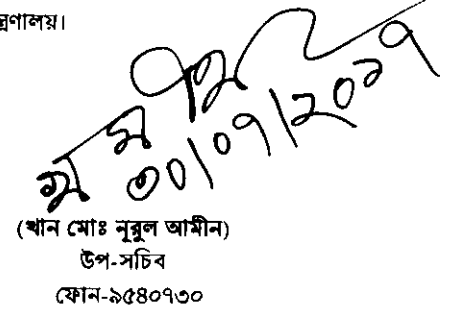 ন্ত্রণালয়।
৩০/০৭/২০১৭
(খান মোঃ নূরুল আমীন)
উপ-সচিব
ফোন-৯৫৪০৭৩০